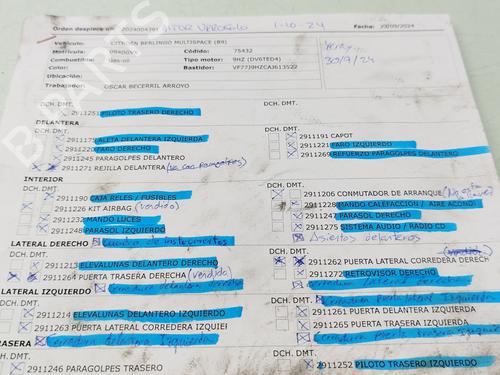 Orden despiece nº 2024004391 1-10-24 Fecha: 23/09/2024
Vehículo: CITROËN BERLINGO MULTISPACE (B9)
Matrícula: 0940GVX Código: 75432
Combustible: Gas-oil Tipo motor: 9HZ (DV6TED4)
Color: Bastidor: VF77J9HZCAJ613522
Ubicación: 30/9/24
Trabajador: OSCAR BECERRIL ARROYO
DCH. DMT. DCH. DMT.
2911251 PILOTO TRASERO DERECHO
DELANTERA
2911175 ALETA DELANTERA IZQUIERDA 2911191 CAPOT
2911220 FARO DERECHO 2911221 FARO IZQUIERDO
2911245 PARAGOLPES DELANTERO 2911269 REFUERZO PARAGOLPES DELANTERO
2911271 REJILLA DELANTERA (va con Paragolpes)
INTERIOR
DCH. DMT. DCH. DMT.
2911190 CAJA RELES / FUSIBLES 2911206 CONMUTADOR DE ARRANQUE
2911226 KIT AIRBAG (vendido) 2911228 MANDO CALEFACCION / AIRE ACONDI
2911232 MANDO LUCES 2911247 PARASOL DERECHO
2911248 PARASOL IZQUIERDO 2911275 SISTEMA AUDIO / RADIO CD
Cuadro de instrumentos Asientos delanteros
LATERAL DERECHO
DCH. DMT. DCH. DMT.
2911213 ELEVALUNAS DELANTERO DERECHO 2911262 PUERTA LATERAL CORREDERA DERECH
2911264 PUERTA TRASERA DERECHA (vendida) 2911272 RETROVISOR DERECHO
Cerradura delantera derecha Cerradura lateral derecha
LATERAL IZQUIERDO
DCH. DMT. Cerradura Puerta lateral Izquierda
2911214 ELEVALUNAS DELANTERO IZQUIERDO 2911261 PUERTA DELANTERA IZQUIERDA
2911263 PUERTA LATERAL CORREDERA IZQUIER 2911265 PUERTA TRASERA IZQUIERDA
Cerradura delantera Izquierda Cerradura Puerta trasera Izquie
TRASERA
DCH. DMT. DCH. DMT.
2911246 PARAGOLPES TRASERO 2911252 PILOTO TRASERO IZQUIERDO